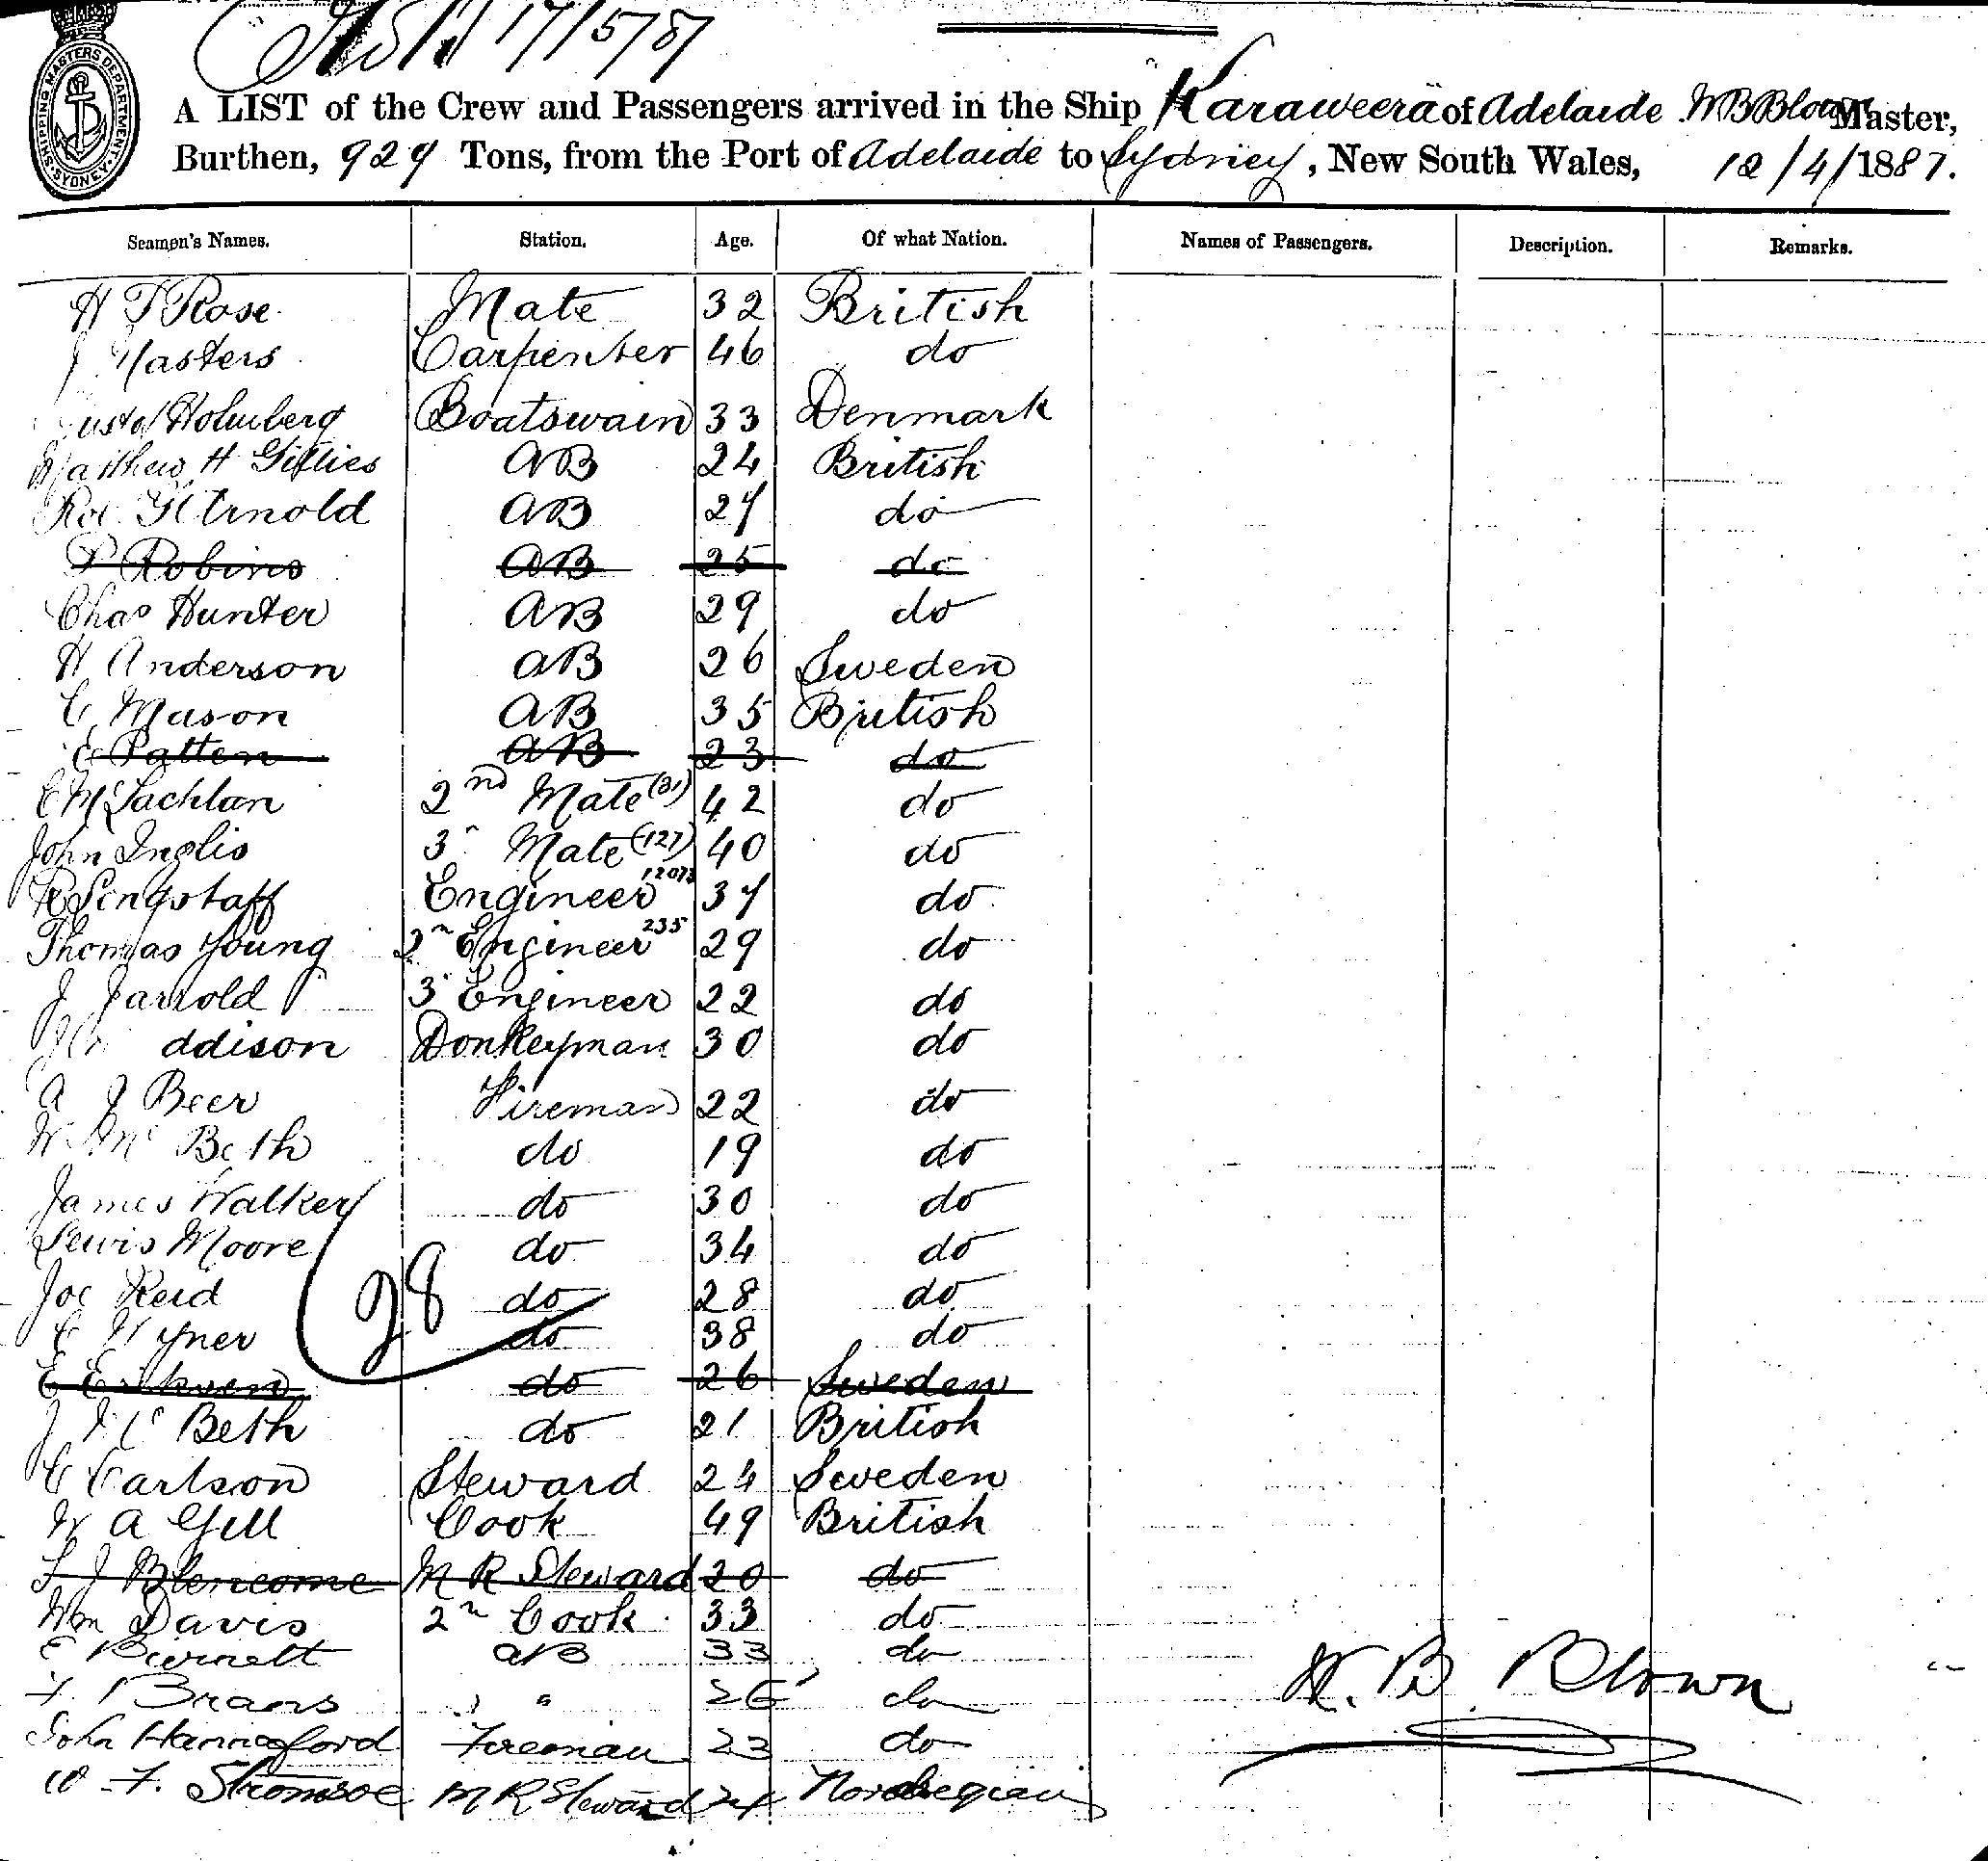 17/5/87
SHIPPING MASTERS DEPARTMENT SYDNEY
A LIST of the Crew and Passengers arrived in the Ship Karaweera of Adelaide W B Blown Master,
Burthen, 929 Tons, from the Port of Adelaide to Sydney, New South Wales, 12/4/1887.
Seamen's Names. Station. Age. Of what Nation. Names of Passengers. Description. Remarks.
H T Rose Mate 32 British
J Masters Carpenter 46 do
Holmberg Boatswain 33 Denmark
Matthew H Gillies AB 24 British
Arnold AB 27 do
P Robins AB 25 do
Chas Hunter AB 29 do
H Anderson AB 26 Sweden
C Mason AB 35 British
E Patten AB 23 do
E McLachlan 2nd Mate 42 do
John Inglis 3 Mate (127) 40 do
R Sengstaff Engineer 37 do
Thomas Young 2n Engineer 235 29 do
J Jarrold 3 Engineer 22 do
ddison Donkeyman 30 do
A J Beer Fireman 22 do
W Mc Beth do 19 do
James Walker do 30 do
Lewis Moore do 34 do
Joe Reid do 28 do
28
C do 38 do
E do 26 Sweden
J Mc Beth do 21 British
C Carlson Steward 24 Sweden
W A Gill Cook 49 British
F J Blencome M R Steward 20 do
Wm Davis 2n Cook 33 do
E Burnett AB 33 do
F. Brans " 26 do
John Hannaford Fireman 23 do
W. F. Stromsoe M R Steward 24 Norwegian
W. B. Blown